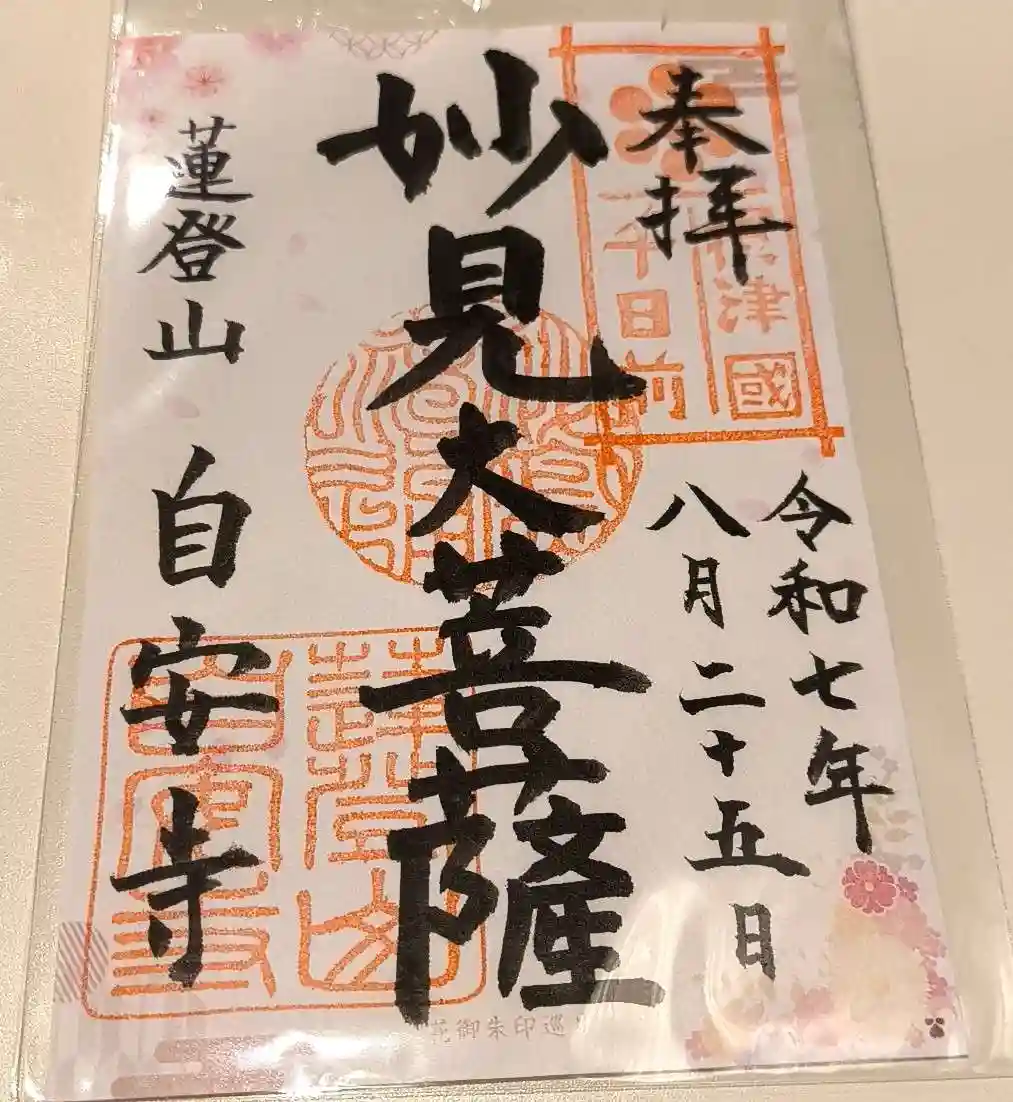 奉拝
津國
千日前
令和七年
八月二十五日
妙見大菩薩
蓮登山 自安寺
花御朱印巡